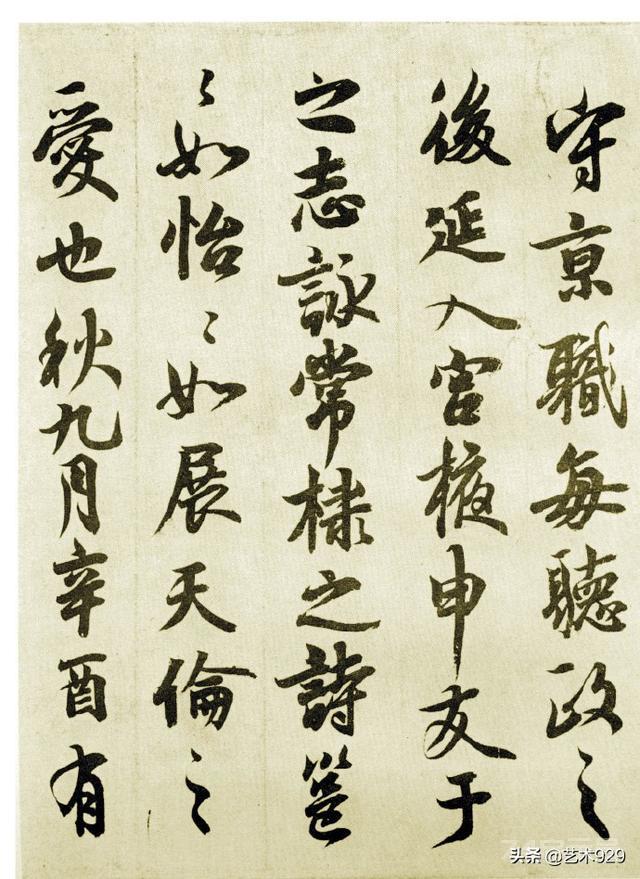 守京職每聽政之
後延入宮掖申友于
之志詠常棣之詩邕
〻如怡〻如展天倫之
愛也秋九月辛酉有
头条 @艺术929